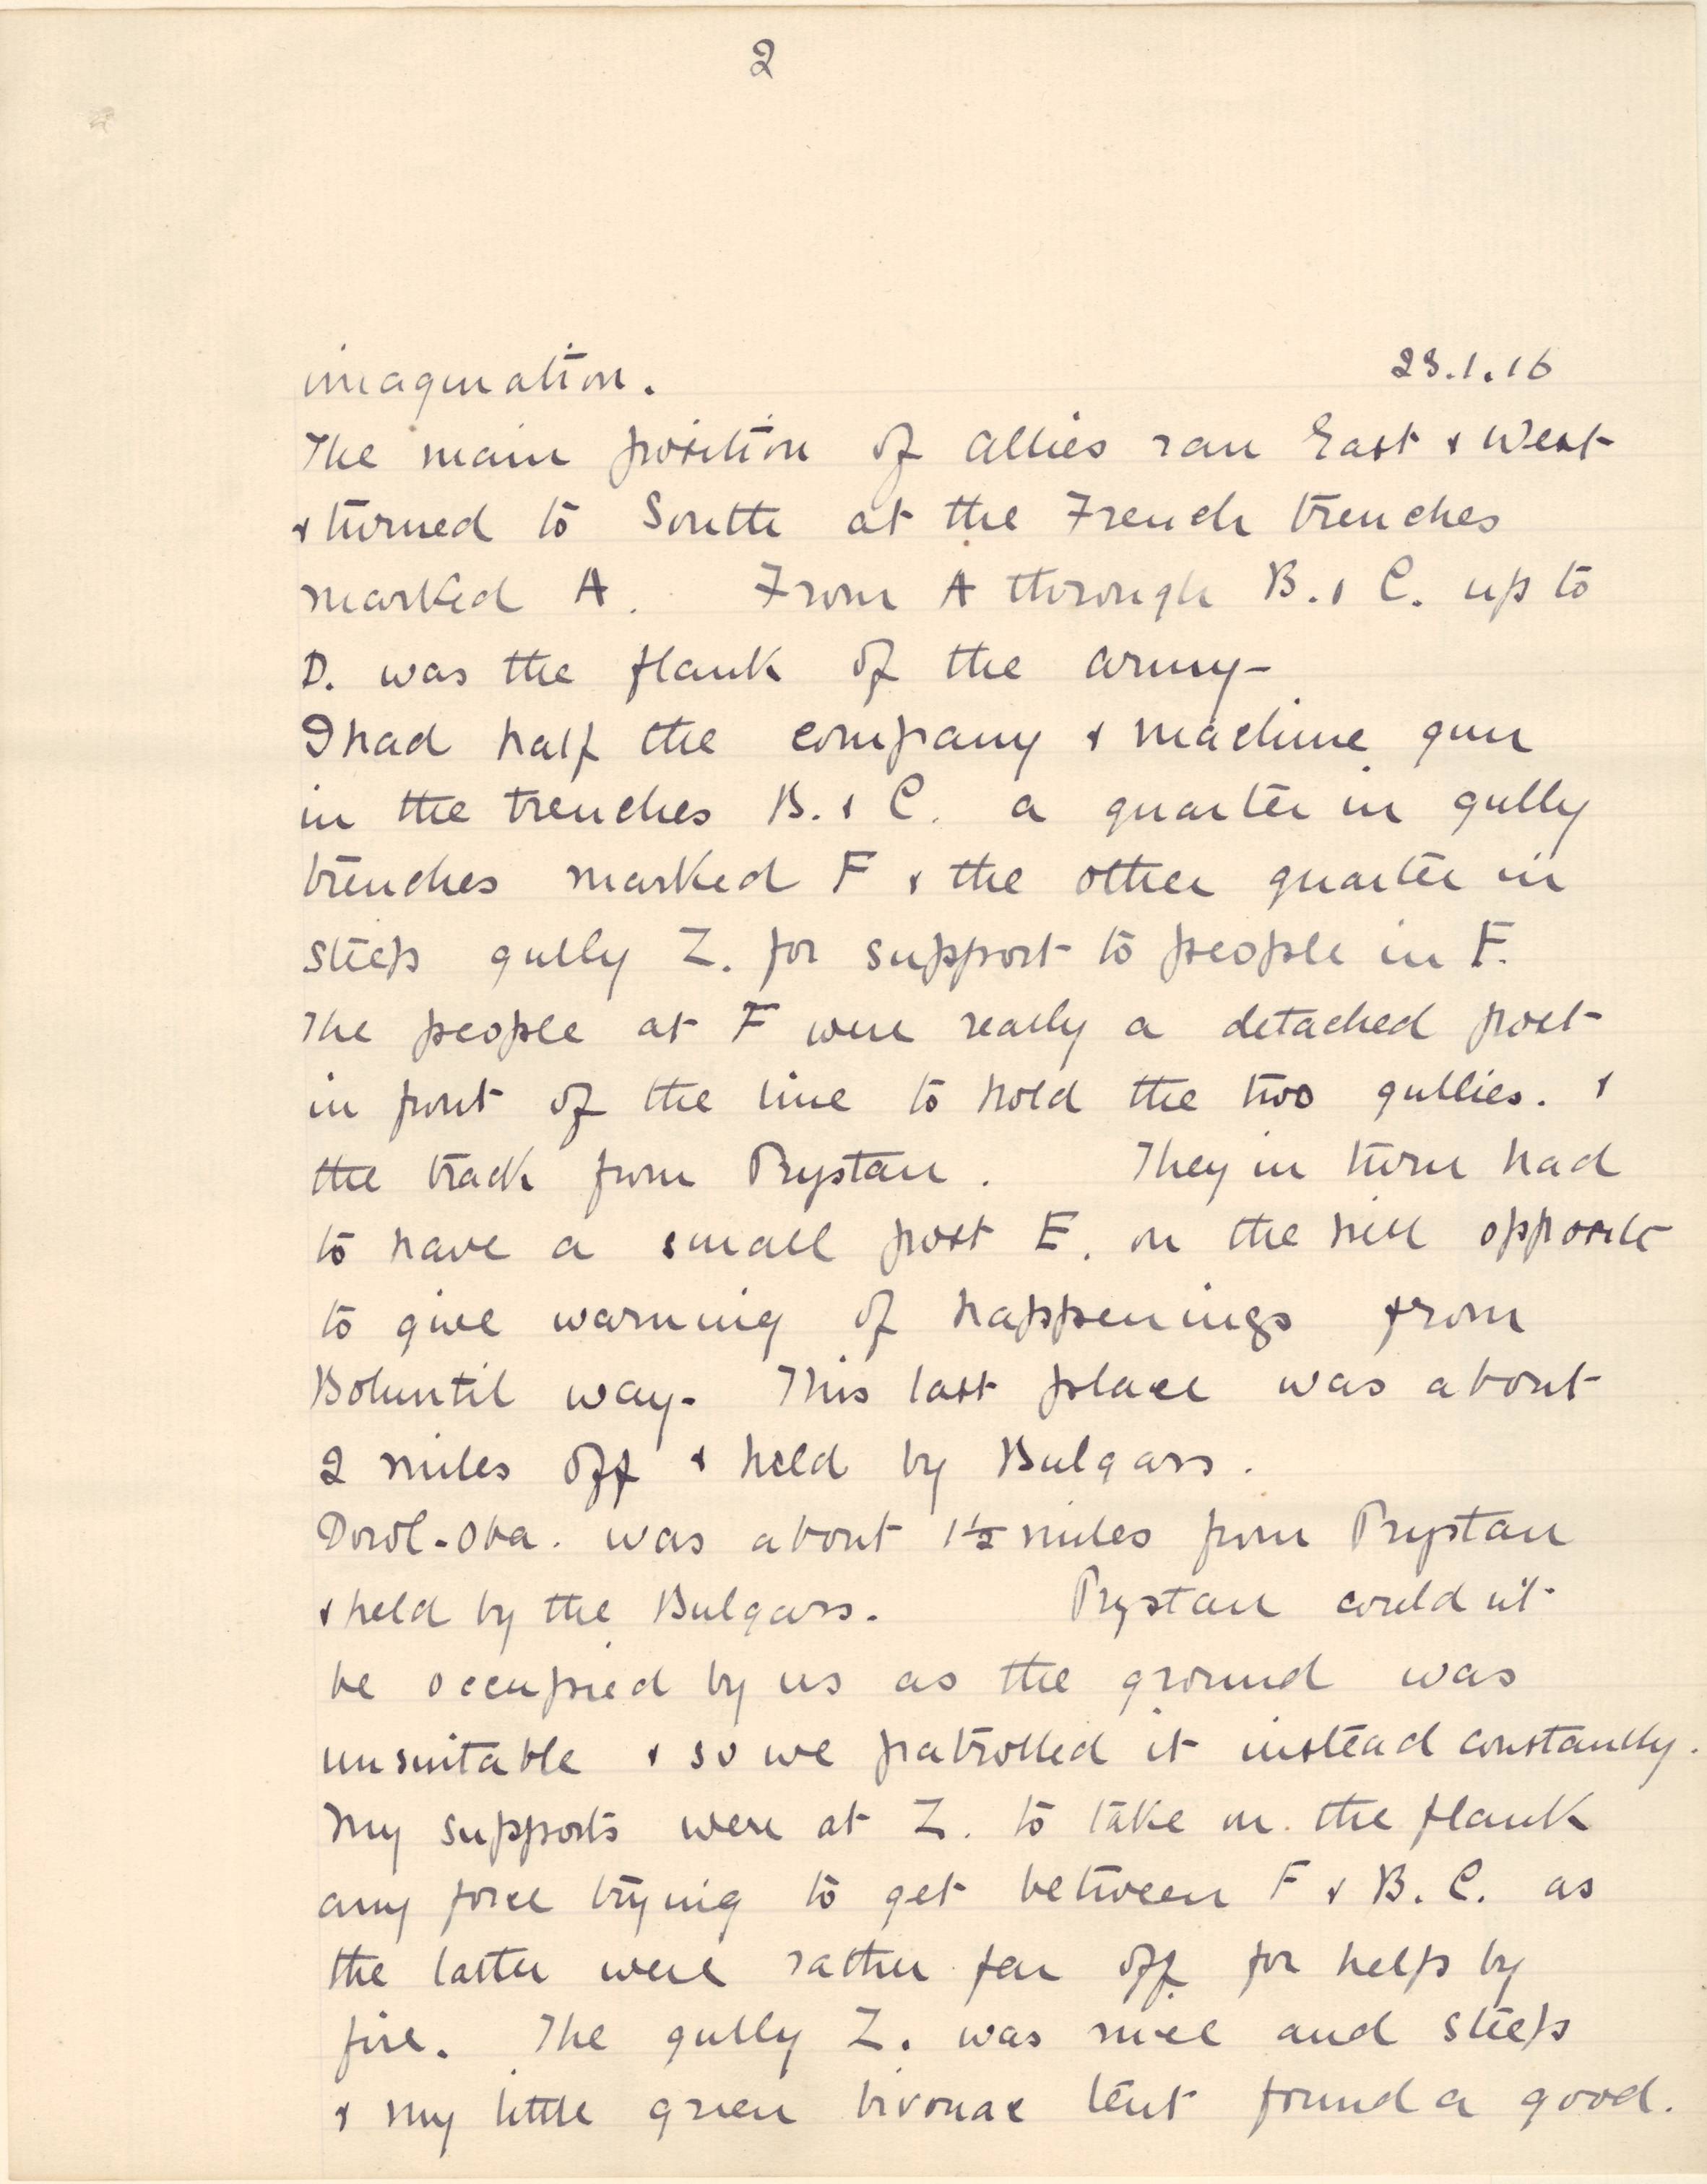 2
imagination. 23.1.16
The main position of Allies ran East & West
& turned to South at the French trenches
marked A. From A through B. & C. up to
D. was the flank of the army-
I had half the company & machine gun
in the trenches B. & C. a quarter in gully
trenches marked F & the other quarter in
steep gully Z. for support to people in F.
The people at F were really a detached post
in front of the line to hold the two gullies. &
the track from Prystan. They in turn had
to have a small post E. on the hill opposite
to give warning of happenings from
Boluntil way- This last place was about
2 miles off & held by Bulgars.
Dorol-Oba. was about 1½ miles from Prystan
& held by the Bulgars. Prystan could n't
be occupied by us as the ground was
unsuitable & so we patrolled it instead constantly.
My supports were at Z. to take in the flank
any force trying to get between F & B. C. as
the latter were rather far off for help by
fire. The gully Z. was nice and steep
& my little green bivouac tent found a good.